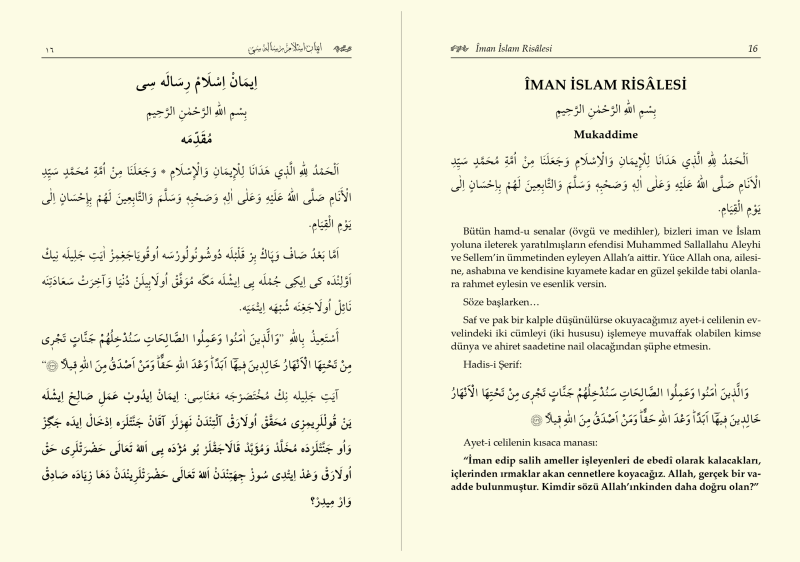 ايمان اسلام رساله سى
١٦
اِيمَانْ اِسْلَامْ رِسَالَه سِى
بِسْمِ اللهِ الرَّحْمٰنِ الرَّحِيمِ
مُقَدِّمَه
اَلْحَمْدُ لِلهِ الَّذِي هَدَانَا لِلْاِيمَانِ وَالْاِسْلَامِ * وَجَعَلَنَا مِنْ اُمَّةِ مُحَمَّدٍ سَيِّدِ
الْاَنَامِ صَلَّى اللهُ عَلَيْهِ وَعَلٰى اٰلِهِ وَصَحْبِهِ وَسَلَّمَ وَالتَّابِعِينَ لَهُمْ بِاِحْسَانٍ اِلٰى
يَوْمِ الْقِيَامِ.
اَمَّا بَعْدُ صَافْ وَپَاكْ بِرْ قَلْبْلَه دُوشُونُولُورْسَه اُوقُويَاجَغِمِزْ اٰيَتِ جَلِيلَه نِيكْ
اَوَّلِنْدَه كى اِيكِى جُمْلَه يِى اِيشْلَه مَكَه مُوَفَّقْ اُولَابِيلَنْ دُنْيَا وَاٰخِرَتْ سَعَادَتِنَه
نَائِلْ اُولَاجَغِنَه شُبْهَه اِيتْمَيَه.
اَسْتَعِيذُ بِاللهِ "وَالَّذِينَ اٰمَنُوا وَعَمِلُوا الصَّالِحَاتِ سَنُدْخِلُهُمْ جَنَّاتٍ تَجْرٖى
مِنْ تَحْتِهَا الْاَنْهَارُ خَالِدِينَ فِيهَٓا اَبَدًاۜ وَعْدَ اللهِ حَقًّاۜ وَمَنْ اَصْدَقُ مِنَ اللهِ قِيلًا"
اٰيَتِ جَلِيلَه نِكْ مُخْتَصَرْجَه مَعْنَاسِى: اِيمَانْ اِيدُوبْ عَمَلِ صَالِحْ اِيشْلَه
يَنْ قُولْلَرِيمِزِى مُحَقَّقْ اُولَارَقْ اٰلْتِنْدَنْ نَهِرْلَرْ اٰقَانْ جَنَّتْلَرَه اِدْخَالْ اِيدَه جَگِزْ
وَاُو جَنَّتْلَرْدَه مُخَلَّدْ وَمُؤَبَّدْ قَالَاجَقْلَرْ بُو مُژْدَه يِى اَللهُ تَعَالَى حَضْرَتْلَرِى حَقْ
اُولَارَقْ وَعْدْ اِيتْدِى سُوزْ جِهَتِنْدَنْ اَللهُ تَعَالَى حَضْرَتْلَرِينْدَنْ دَهَا زِيَادَه صَادِقْ
وَارْ مِيدِرْ؟
Îman İslam Risâlesi
16
ÎMAN İSLAM RİSÂLESİ
بِسْمِ اللهِ الرَّحْمٰنِ الرَّحِيمِ
Mukaddime
اَلْحَمْدُ لِلهِ الَّذِي هَدَانَا لِلْاِيمَانِ وَالْاِسْلَامِ وَجَعَلَنَا مِنْ اُمَّةِ مُحَمَّدٍ سَيِّدِ
الْاَنَامِ صَلَّى اللهُ عَلَيْهِ وَعَلٰى اٰلِهِ وَصَحْبِهِ وَسَلَّمَ وَالتَّابِعِينَ لَهُمْ بِاِحْسَانٍ اِلٰى
يَوْمِ الْقِيَامِ.
Bütün hamd-u senalar (övgü ve medihler), bizleri iman ve İslam
yoluna ileterek yaratılmışların efendisi Muhammed Sallallahu Aleyhi
ve Sellem'in ümmetinden eyleyen Allah'a aittir. Yüce Allah ona, ailesi-
ne, ashabına ve kendisine kıyamete kadar en güzel şekilde tabi olanla-
ra rahmet eylesin ve esenlik versin.
Söze başlarken…
Saf ve pak bir kalple düşünülürse okuyacağımız ayet-i celilenin ev-
velindeki iki cümleyi (iki hususu) işlemeye muvaffak olabilen kimse
dünya ve ahiret saadetine nail olacağından şüphe etmesin.
Hadis-i Şerif:
وَالَّذِينَ اٰمَنُوا وَعَمِلُوا الصَّالِحَاتِ سَنُدْخِلُهُمْ جَنَّاتٍ تَجْرٖى مِنْ تَحْتِهَا الْاَنْهَارُ
خَالِدِينَ فِيهَٓا اَبَدًاۜ وَعْدَ اللهِ حَقًّاۜ وَمَنْ اَصْدَقُ مِنَ اللهِ قِيلًا
Ayet-i celilenin kısaca manası:
“İman edip salih ameller işleyenleri de ebedî olarak kalacakları,
içlerinden ırmaklar akan cennetlere koyacağız. Allah, gerçek bir va-
adde bulunmuştur. Kimdir sözü Allah'ınkinden daha doğru olan?”